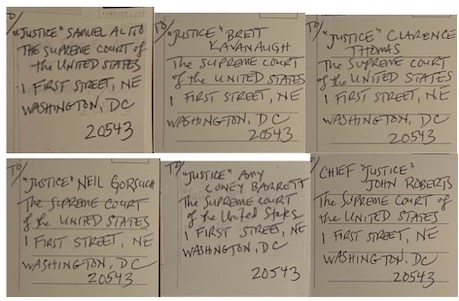 TO/
"JUSTICE" SAMUEL ALITO
THE SUPREME COURT of
the UNITED STATES
1 FIRST STREET, NE
WASHINGTON, DC
20543
TO/
"JUSTICE" BRETT
KAVANAUGH
The SUPREME COURT
of the UNITED STATES
1 FIRST STREET, NE
WASHINGTON, DC
20543
TO/
"JUSTICE" CLARENCE
THOMAS
The SUPREME COURT
of the UNITED STATES
1 FIRST STREET, NE
WASHINGTON, DC
20543
TO/
"JUSTICE" NEIL GORSUCH
The SUPREME COURT
of the UNITED STATES
1 FIRST STREET, NE
WASHINGTON, DC
20543
TO/
"JUSTICE" AMY
CONEY BARRETT
The SUPREME COURT
of the United States
1 FIRST STREET, NE
WASHINGTON, DC
20543
TO/
CHIEF "JUSTICE"
JOHN ROBERTS
The SUPREME COURT of
the UNITED STATES
1 FIRST STREET, NE
WASHINGTON, DC
20543